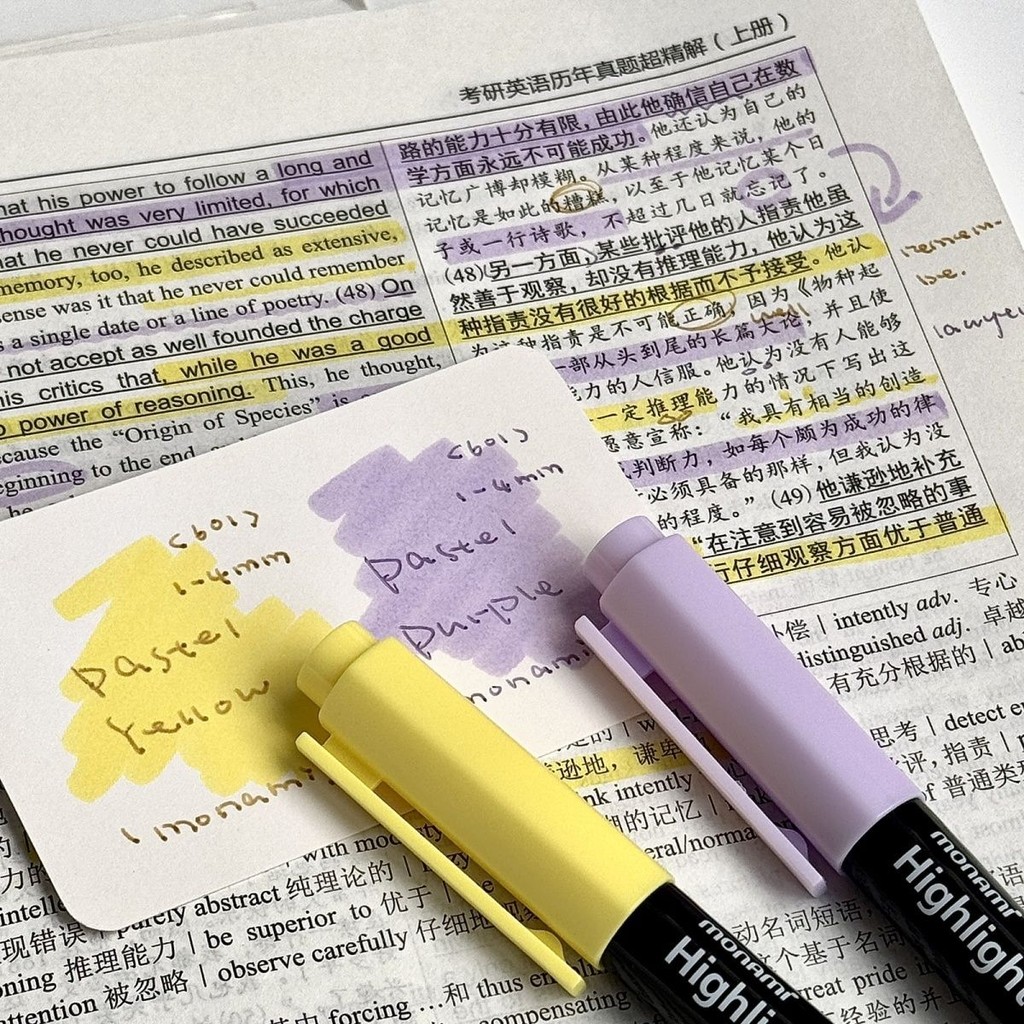 考研英语历年真题超精解（上册）
hat his power to follow a long and
hought was very limited, for which
hat he never could have succeeded
memory, too, he described as extensive,
sense was it that he never could remember
s a single date or a line of poetry. (48) On
not accept as well founded the charge
his critics that, while he was a good
power of reasoning. This, he thought,
ecause the “Origin of Species” is
eginning to the end,
路的能力十分有限，由此他确信自己在数
学方面永远不可能成功。他还认为自己的
记忆广博却模糊。从某种程度来说，他的
记忆是如此的糟糕，以至于他记忆某个日
子或一行诗歌，不超过几日就忘记了。
(48)另一方面，某些批评他的人指责他虽
然善于观察，却没有推理能力，他认为这
种指责没有很好的根据而不予接受。他认
为这种指责是不可能正确，因为《物种起
一部从头到尾的长篇大论，并且使
能力的人信服。他认为没有人能够
一定推理能力的情况下写出这
愿意宣称：“我具有相当的创造
判断力，如每个颇为成功的律
必须具备的那样，但我认为没
的程度。” (49) 他谦逊地补充
“在注意到容易被忽略的事
行仔细观察方面优于普通
remem-
be.
lawyer
<601>
1-4mm
pastel
Yellow
monami
<601>
1-4mm
pastel
purple
monami
补偿 | intently adv. 专心
distinguished adj. 卓越
有充分根据的 | ab
思考 | detect
评，指责
of 普通类
逊地，谦卑
nk intently
with mode
的记忆
eral/norma
purely abstract 纯理论的
现错误
oning 推理能力 | be superior to 优于
attention 被忽略 | observe carefully 仔细地观察
其中 forcing …和 thus
compensating
动名词短语，
个基于名词
great pride in
经验的并
monami
Highli
monami
Highlight